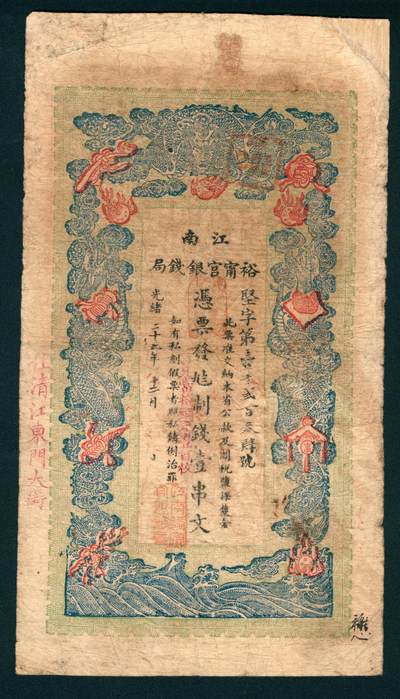 江南
裕甯官銀錢局
堅字第壹千弍百叁拾號
此票准交納本省公款及關稅鹽課釐金
憑票發九制錢壹串文
如有私刻假票者照私鑄例治罪
光緒二十九年十二月
清江東門大街